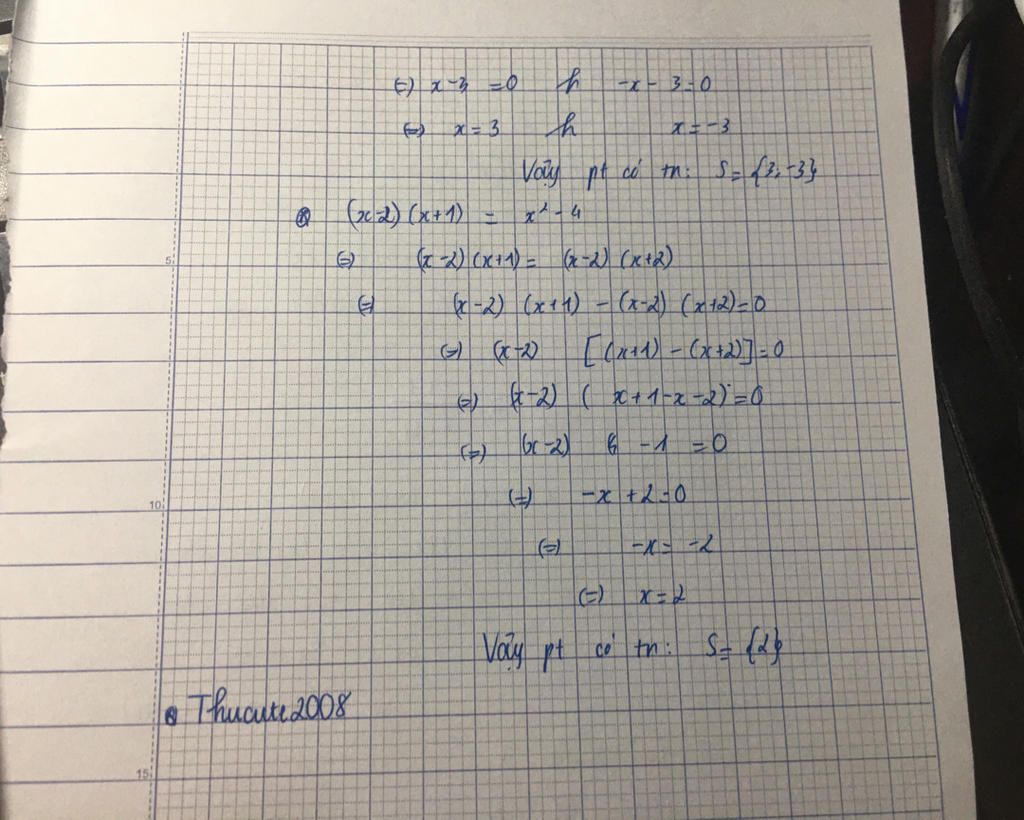 (=) x-3 =0 h -x- 3=0
(=) x= 3 h x= -3
Vậy pt có tn: S= {3,-3}
(x-2) (x+1) = x² - 4
(=) (x-2) (x+1) = (x-2) (x+2)
(=) (x-2) (x+1) - (x-2) (x+2)=0
5
(=) (x-2) [(x+1) - (x+2)]=0
(=) (x-2) ( x+1-x-2)=0
(=) (x-2) -1 =0
(=) -x +2=0
10
(=) -x= -2
(=) x=2
Vậy pt có tn: S= {2}
Thucute2008
15